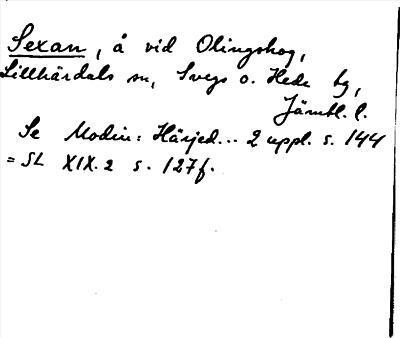 Sexan, å vid Olingskog,
Lillhärdals sn, Svegs o. Hede tg,
Jämtl. l.
Se Modin: Härjed... 2 uppl. s. 144
= SL XIX. 2 s. 127f.